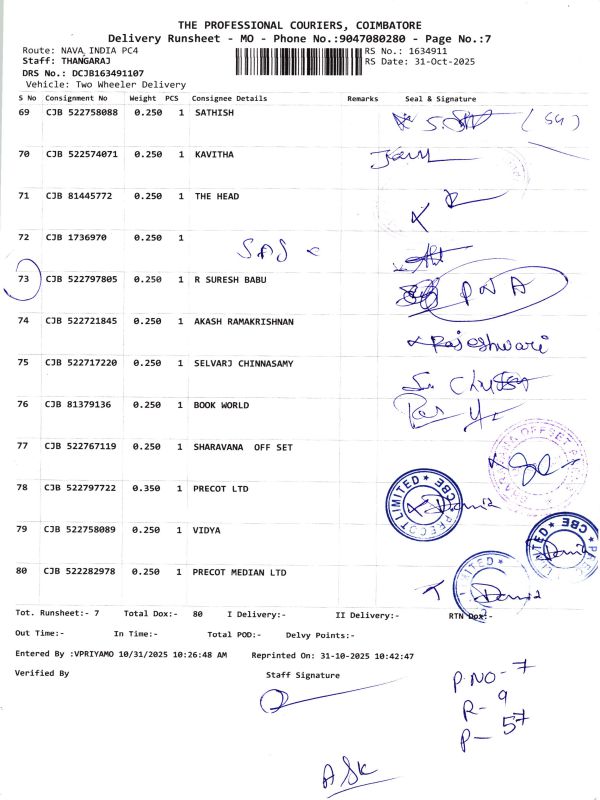 THE PROFESSIONAL COURIERS, COIMBATORE
Delivery Runsheet - MO - Phone No.:9047080280 - Page No.:7
Route: NAVA INDIA PC4 RS No.: 1634911
Staff: THANGARAJ RS Date: 31-Oct-2025
DRS No.: DCJB163491107
Vehicle: Two Wheeler Delivery
S No Consignment No Weight PCS Consignee Details Remarks Seal & Signature
69 CJB 522758088 0.250 1 SATHISH
70 CJB 522574071 0.250 1 KAVITHA
71 CJB 81445772 0.250 1 THE HEAD
72 CJB 1736970 0.250 1
73 CJB 522797805 0.250 1 R SURESH BABU PNA
74 CJB 522721845 0.250 1 AKASH RAMAKRISHNAN Rajeshwari
75 CJB 522717220 0.250 1 SELVARJ CHINNASAMY
76 CJB 81379136 0.250 1 BOOK WORLD
77 CJB 522767119 0.250 1 SHARAVANA OFF SET
78 CJB 522797722 0.350 1 PRECOT LTD PRECOT LIMITED ★ CBE ★
79 CJB 522758089 0.250 1 VIDYA
80 CJB 522282978 0.250 1 PRECOT MEDIAN LTD
Tot. Runsheet:- 7 Total Dox:- 80 I Delivery:- II Delivery:- RTN Dox:-
Out Time:- In Time:- Total POD:- Delvy Points:-
Entered By :VPRIYAMO 10/31/2025 10:26:48 AM Reprinted On: 31-10-2025 10:42:47
Verified By Staff Signature
P.NO-7
R-9
P-57
ASK